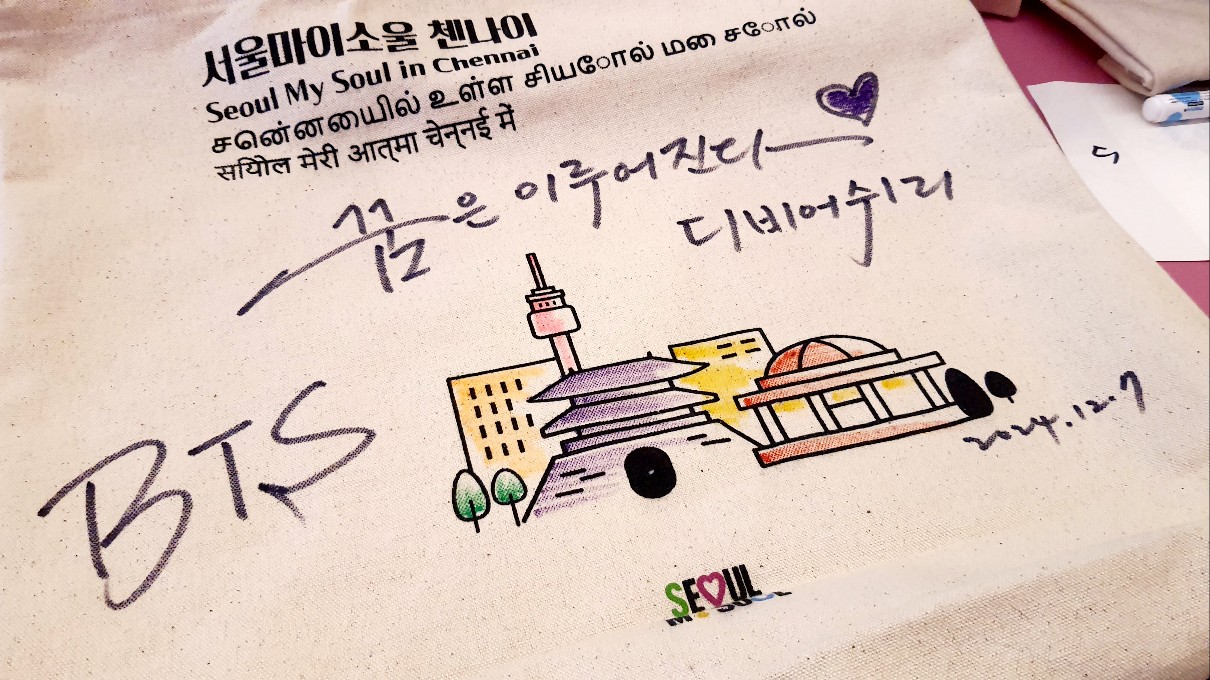 서울마이소울 첸나이
Seoul My Soul in Chennai
சென்னையில் உள்ள சியோல் மை சோல்
सियोल मेरी आत्मा चेन्नई में
꿈은 이루어진다
디비어쉬리
BTS
2024.12.7
SEOUL
MY SOUL